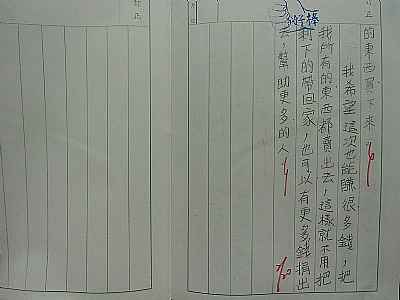 的東西買下來。
我希望這次也能賺很多錢，把
我所有的東西都賣出去，這樣就不用把
剩下的帶回家，也可以有更多錢捐出
去，幫助更多的人。
好棒